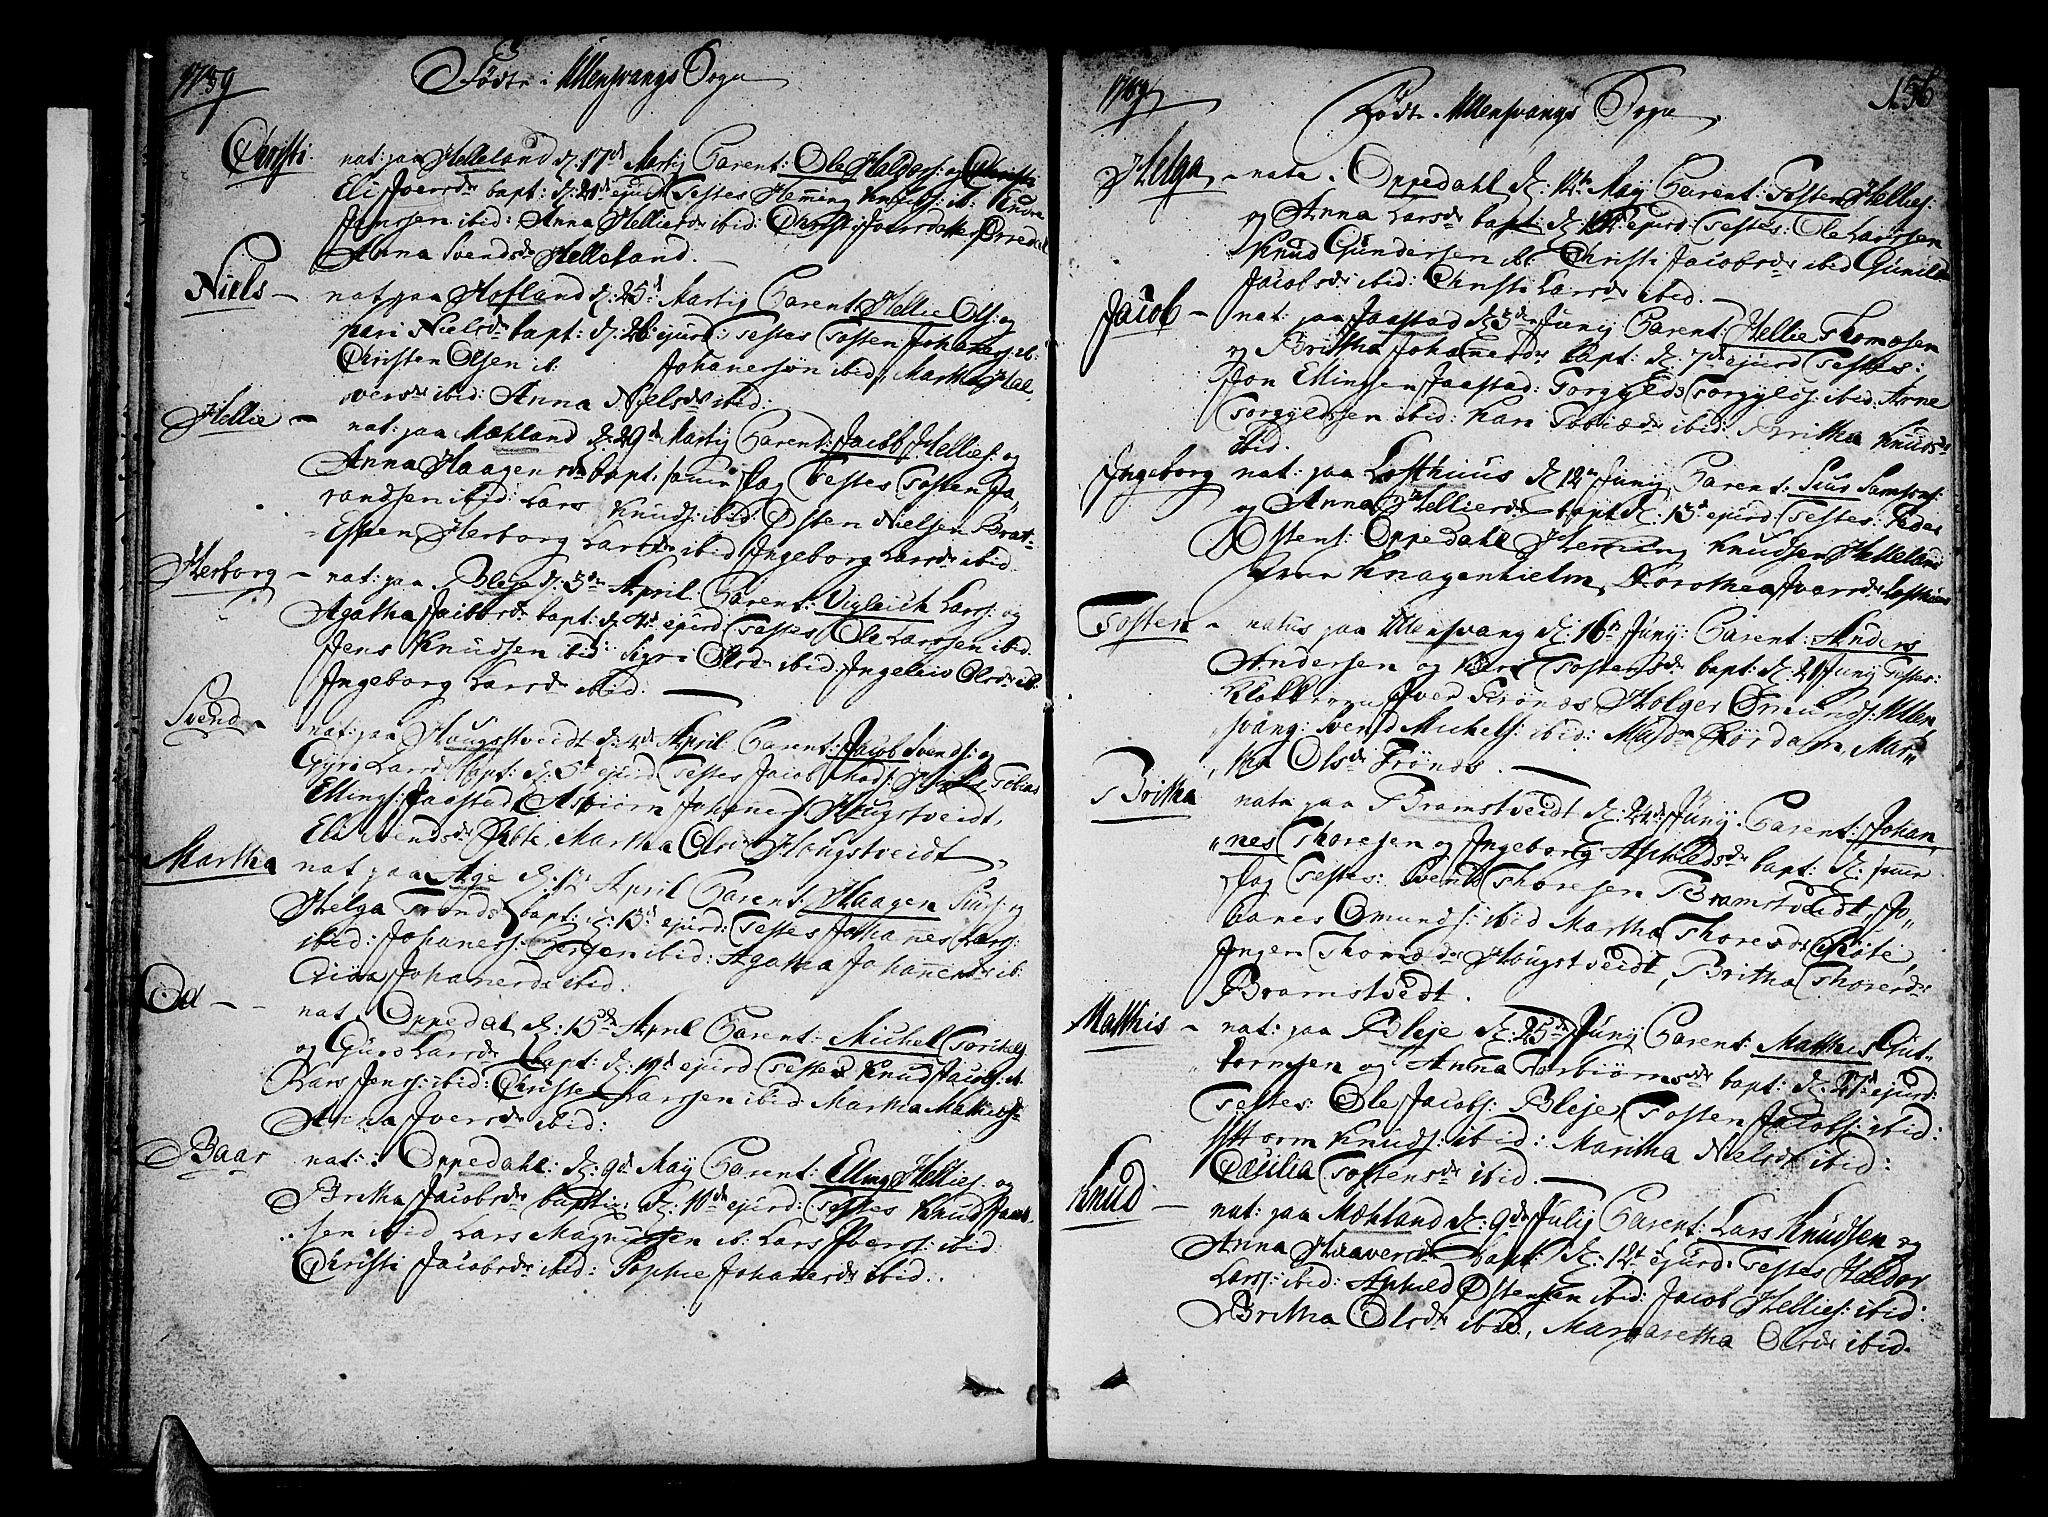 1789
Fødte i Ullensvangs Sogn
Christi. nat: paa Helleland d: 17d Martij Parent: Ole Haldors: og
Eli Joersdr bapt: d: 21d ejusd Testes Hemming Knuds: ib:
Jensen ibid: Anna Helliesdr ibid: Christi Joersdatter Oppedal
Anna Svendsdr Helleland.
Niels – nat paa Hofland d: 25d Martij Parent: Hellie Ols: og
Kari Nielsdr bapt: d: 26 ejusd: Testes Tosten Johanes: ib:
Christen Olsen ib. Johanersøn ibid: Martha Hal
versdr ibid: Anna Nielsdr ibid:
Hellie – nat: paa Mæhland d: 29d Martij Parent: Jacob Hellies: og
Anna Haagensdr bapt: samme Dag Testes Tosten Ja
randsen ibid: Lars Knuds: ibid: Østen Nielsen Brat
Espen Herborg Larsdr ibid Ingeborg Larsdr ibid.
Herborg – nat: paa Bleje d: 3de April Parent: Vigleich Lars: og
Agatha Jacobsdr bapt: d: 4d ejusd: Testes Ole Larssen ibid.
Jens Knudsen ibid: Sigri Olsdr ibid: Ingeleiv Olsdr ib:
Ingeborg Larsdr ibid:
Svend – nat: paa Hougstveidt d: 4d April Parent: Jacob Svends: og
Gyri Larsdr bapt: d: 5d ejusd Testes Jacob Mads: Tobias
Ellings: Jaastad Asbiørn Johanes: Hougstveidt,
Eli Svendsdr Martha Olsdr Hougstveidt
Martha nat paa Age d: 12 April Parent: Haagen Siurs: og
Helga Trondsdr bapt: d: 13d ejusd: Testes Johannes Lars:
ibid: Johaners: ibid: Agatha Johannesdr ib:
Johanersdr ibid.
Od – nat i Oppedal d: 15de April Parent: Michel Torkels
og Guro Larsdr bapt: d: 19d ejusd Testes Knud Jacobs: ib.
Lars Jens: ibid: Christen Larssen ibid: Martha
Anna Joersdr ibid:
Baar nat: i Oppedahl: d: 9d May Parent: Elling Hellies: og
Britha Jacobsdr baptiz: d: 10de ejusd: Testes Knud
sen ibid Lars Magnussen ib: Lars Joers: ibid:
Christi Jacobsdr ibid: Sophie Johanersdr ibid:.
1789
156
Fødte i Ullensvangs Sogn.
Helga, – nata i Oppedahl d: May Parent: Tosten Hellies:
og Anna Larsdr bapt d: ejusd Testes: Ole Larssen
Knud Gundersen ib: Christi Jacobsdr ibid Gunild
Jacobsdr ibid: Christi Larsdr ibid.
Jacob – nat: paa Jaastad d: 3de Junij Parent: Hellie Thomæsen
og Britha Johanersdr bapt: d: 7d ejusd Testes:
Jon Ellingsen Jaastad: Torgyls Torgyls: ibid: Arne
Torgyldsen ibid: Kari Tobiædr ibid: Britha Knudsdr
ibid.
Ingeborg nat: paa Lofthuus d: 12 Junij Parent: Siur Samsons:
og Anna Helliesdr bapt d: 13d ejusd: Testes: Peder
Østens: Oppedahl Heming Knudsen Helleland
frue Knagenhielm, Dorothea Ivarsdr Lofthuus
Tosten – natus paa Ullensvang d: 16 Junij: Parent: Anders
Andersen og Kari Tostensdr bapt: d: 21 Junij Testes:
Klokkeren Iver Trønes, Holger Omunds: Ullen
svang: Svend Michels: ibid: Mar
tha Olsdr Trønes.
Britha nata paa Bramstveidt d: 24d Junij. Parent: Johan
nes Thoresen og Ingeborg Aphledsdr bapt: d: samme
Dag Testes: Svend Thoresen Bramstveidt, Jo
hanes Omunds: ibid Martha Thoresdr
Inger Thomædr Hougstveidt, Britha Thorersdr
Bramstvedt.
Matthis – nat: paa Bleje d: 25de Junij Parent: Matthis Gut
tormsen og Anna Torbiørnsdr bapt: d: 27d ejusd:
Testes: Ole Jacobs: Bleje Tosten Jacobs: ibid:
Knuds: ibid: Martha Nielsdr ibid:
Cæcilia Tostensdr ibid.
Knud – nat: paa Mæhland d: 9de Julij Parent: Lars Knudsen og
Anna Haaversdr bapt: d: 12t ejusd: Testes Haldor
Lars: ibid: Aphled Østensen ibid: Jacob Hellies: ibid:
Britha Olsdr ibid, Margaretha Olsdr ibid.